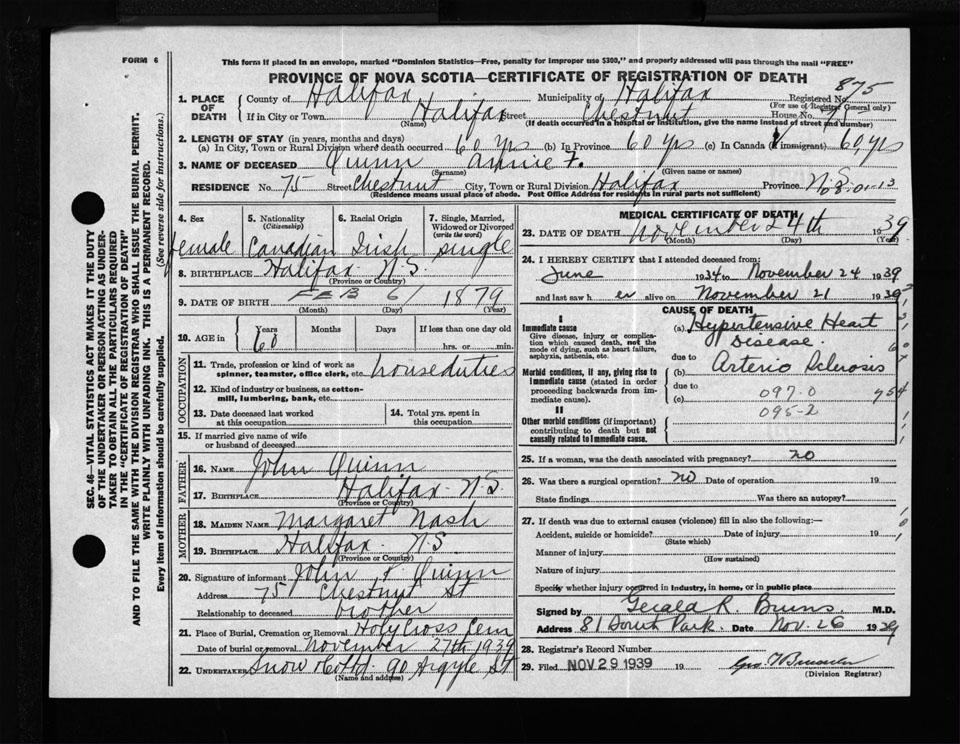 FORM 6
This form if placed in an envelope, marked "Dominion Statistics—Free, penalty for improper use $300," and properly addressed will pass through the mail "FREE"
PROVINCE OF NOVA SCOTIA—CERTIFICATE OF REGISTRATION OF DEATH
875
1. PLACE OF DEATH County of Halifax Municipality of Halifax Registered No.
(For use of Registrar General only)
If in City or Town Halifax Street Chestnut House No. 75
(Name) (If death occurred in a hospital or institution, give the name instead of street and number)
2. LENGTH OF STAY (in years, months and days)
(a) In City, Town or Rural Division where death occurred 60 yrs (b) In Province 60 yrs (c) In Canada (if immigrant) 60 yrs
3. NAME OF DECEASED Quinn Annie F.
(Surname) (Given name or names)
RESIDENCE No. 75 Street Chestnut City, Town or Rural Division Halifax Province N.S.
(Residence means usual place of abode. Post Office Address for residents in rural parts not sufficient)
4. Sex female
5. Nationality (Citizenship) Canadian
6. Racial Origin Irish
7. Single, Married, Widowed or Divorced (write the word) single
8. BIRTHPLACE Halifax N.S.
(Province or Country)
9. DATE OF BIRTH FEB 6 1879
(Month) (Day) (Year)
10. AGE in Years 60 Months Days If less than one day old
hrs. or min.
OCCUPATION
11. Trade, profession or kind of work as spinner, teamster, office clerk, etc. houseduties
12. Kind of industry or business, as cotton-mill, lumbering, bank, etc.
13. Date deceased last worked at this occupation
14. Total yrs. spent in this occupation
15. If married give name of wife or husband of deceased
FATHER
16. NAME John Quinn
17. BIRTHPLACE Halifax N.S.
(Province or Country)
MOTHER
18. MAIDEN NAME Margaret Nash
19. BIRTHPLACE Halifax N.S.
(Province or Country)
20. Signature of informant John F. Quinn
Address 75 Chestnut St
Relationship to deceased brother
21. Place of Burial, Cremation or Removal Holy Cross Cem
Date of burial or removal November 27th 1939
22. UNDERTAKER Snow & Co Ltd. 90 Argyle St
(Name and address)
MEDICAL CERTIFICATE OF DEATH
23. DATE OF DEATH November 24th 1939
(Month) (Day) (Year)
24. I HEREBY CERTIFY that I attended deceased from:
June 1934 to November 24 1939
and last saw h er alive on November 21 1939
CAUSE OF DEATH
I
Immediate cause
Give disease, injury or complication which caused death, not the mode of dying, such as heart failure, asphyxia, asthenia, etc.
(a) Hypertensive Heart Disease.
due to
Morbid conditions, if any, giving rise to immediate cause (stated in order proceeding backwards from immediate cause).
(b) Arterio Sclerosis
due to
(c) 097.0
095-2
II
Other morbid conditions (if important) contributing to death but not causally related to immediate cause.
25. If a woman, was the death associated with pregnancy? no
26. Was there a surgical operation? no Date of operation 19
State findings Was there an autopsy?
27. If death was due to external causes (violence) fill in also the following:—
Accident, suicide or homicide? Date of injury 19
(State which)
Manner of injury
(How sustained)
Nature of injury
Specify whether injury occurred in industry, in home, or in public place
Signed by Gerald R. Burns M.D.
Address 81 South Park. Date Nov. 26 1939
28. Registrar's Record Number
29. Filed NOV 29 1939 19
(Division Registrar)
SEC. 46—VITAL STATISTICS ACT MAKES IT THE DUTY
OF THE UNDERTAKER OR PERSON ACTING AS UNDER-
TAKER TO OBTAIN ALL THE PARTICULARS REQUIRED
IN THE "CERTIFICATE OF REGISTRATION OF DEATH"
AND TO FILE THE SAME WITH THE DIVISION REGISTRAR WHO SHALL ISSUE THE BURIAL PERMIT.
WRITE PLAINLY WITH UNFADING INK. THIS IS A PERMANENT RECORD.
Every item of information should be carefully supplied. (See reverse side for instructions.)